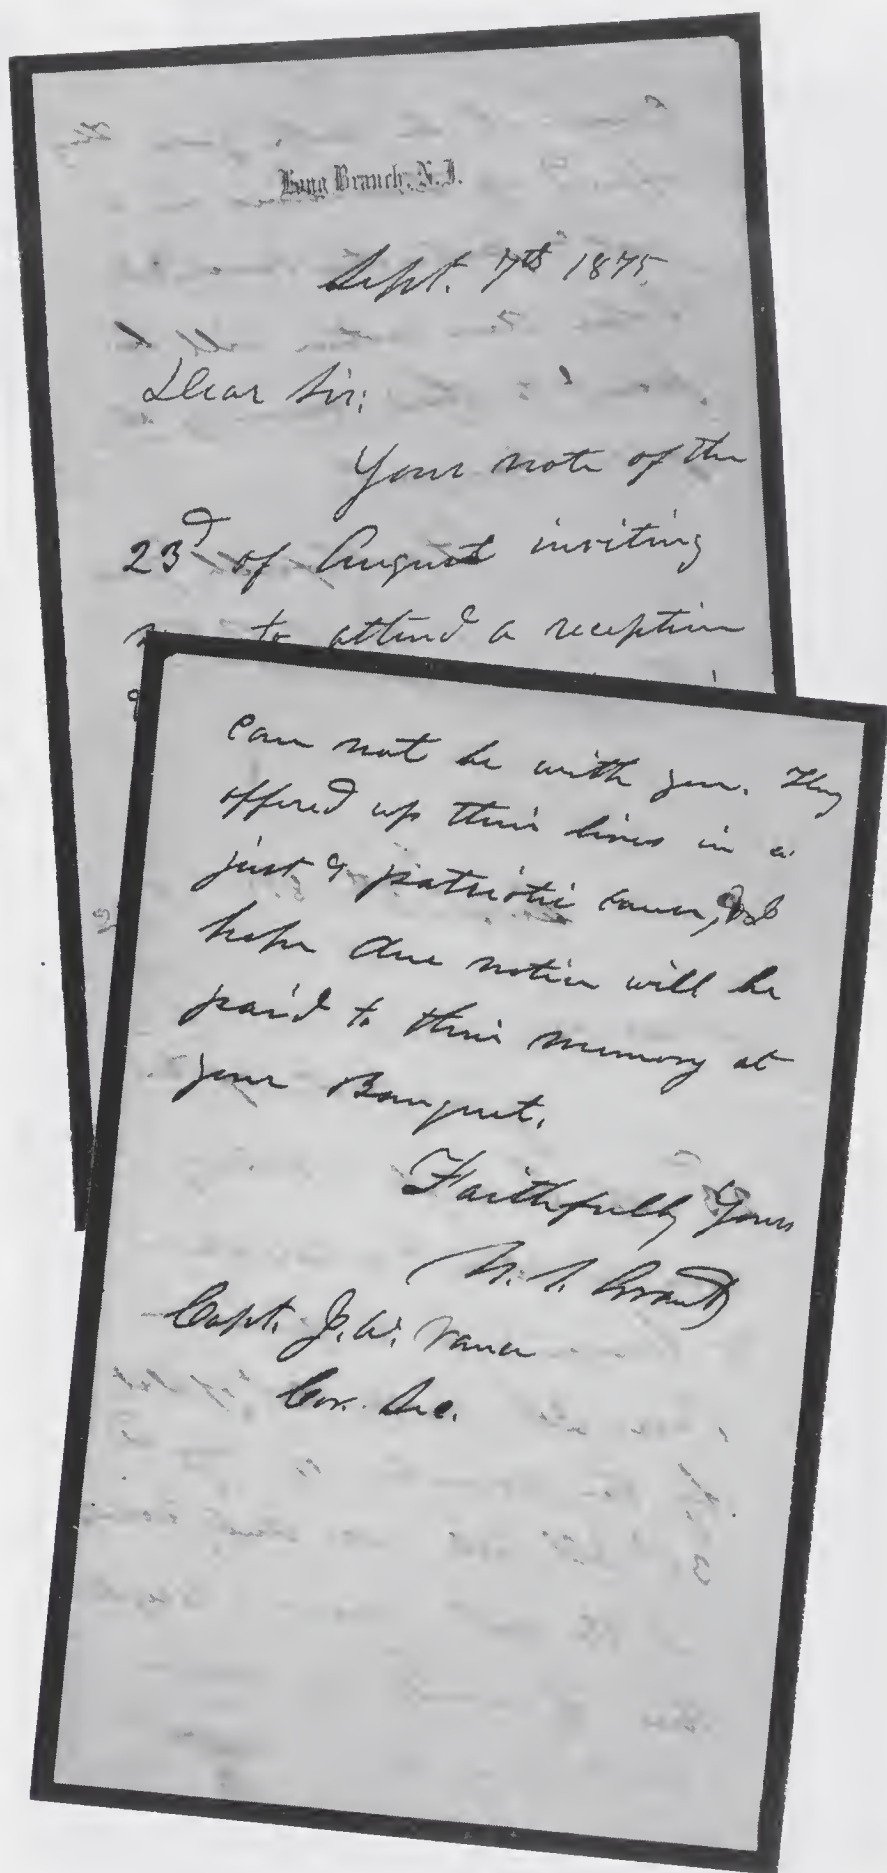 Long Branch, N.J.
Sept. 7th 1875.
Dear Sir;
Your note of the
23d of August inviting
to attend a reception
can not be with you. They
offered up their lives in a
just & patriotic cause, & I
hope due notice will be
paid to their memory at
your Banquet.
Faithfully Yours
U. S. Grant
Capt. J. W. Vance
Cor. Sec.